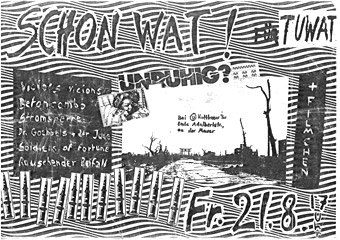 SCHON WAT!
FÜR TUWAT
UNRUHIG?
Vicious Visions
Betoncombo
Stromsperre
Dr. Goebbels + der Jugo
Soldiers of Fortune
Rauschender Beifall
Bei Kottbusser Tor
Ende Adalbertstr.
an der Mauer
+ FILMSZENEN
Fr. 21.8.